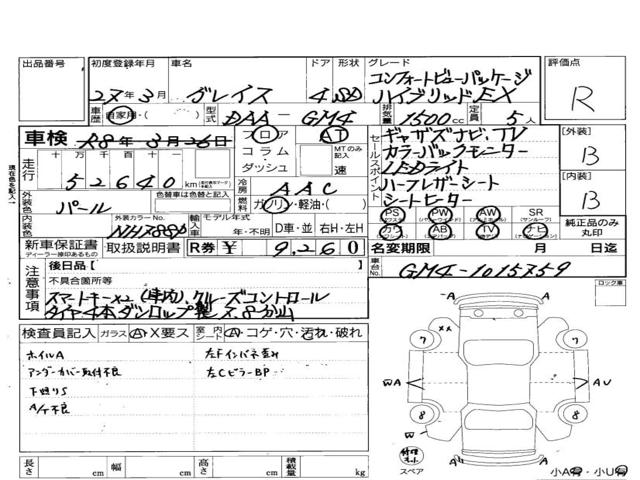 出品番号 初度登録年月 車名 ドア 形状 グレード 評価点
27年3月 グレイス 4 SD コンフォートビューパッケージ
ハイブリッドEX
R
車歴 自家用・( ) 型式 DAA-GM4 排気量 1500cc 定員 5人
車検 R8年3月26日 フロア AT セールスポイント ギャザズナビ,TV 【外装】
走行 十万 万 千 百 十 コラム MTのみ記入 カラーバックモニター B
52640km ダッシュ 速 LEDライト
現在色を記入 外装色 パール 色替車は色替と記入 冷房 AAC ハーフレザーシート 【内装】
燃料 ガソリン・軽油・( ) シートヒーター B
内装色 外装カラーNo. NH788P 輸入車 モデル年式 年・不明 D車・並 右H・左H
PS PW AW SR
カワ AB TV ナビ 純正品のみ丸印
新車保証書 取扱説明書 R券 ¥ 9,260 名変期限 月 日迄
ディーラー捺印あるもの
注意事項 後日品【 】 車台No. GM4-1015759
不具合箇所等 ロック車
スマートキー×2(車内),クルーズコントロール
タイヤ4本ダンロップ製
検査員記入 ガラス A・X要ス 室内シート A・コゲ・穴・汚れ・破れ
ホイルA 左Fインパネ歪み
アンダーカバー取付不良 左CピラーBP
下廻りS
A/T不良
A
××
7 7
WA AU
8 8
W
A A
スペア
小A有・小U有
長さ cm 幅 cm 高さ cm 積載量 kg